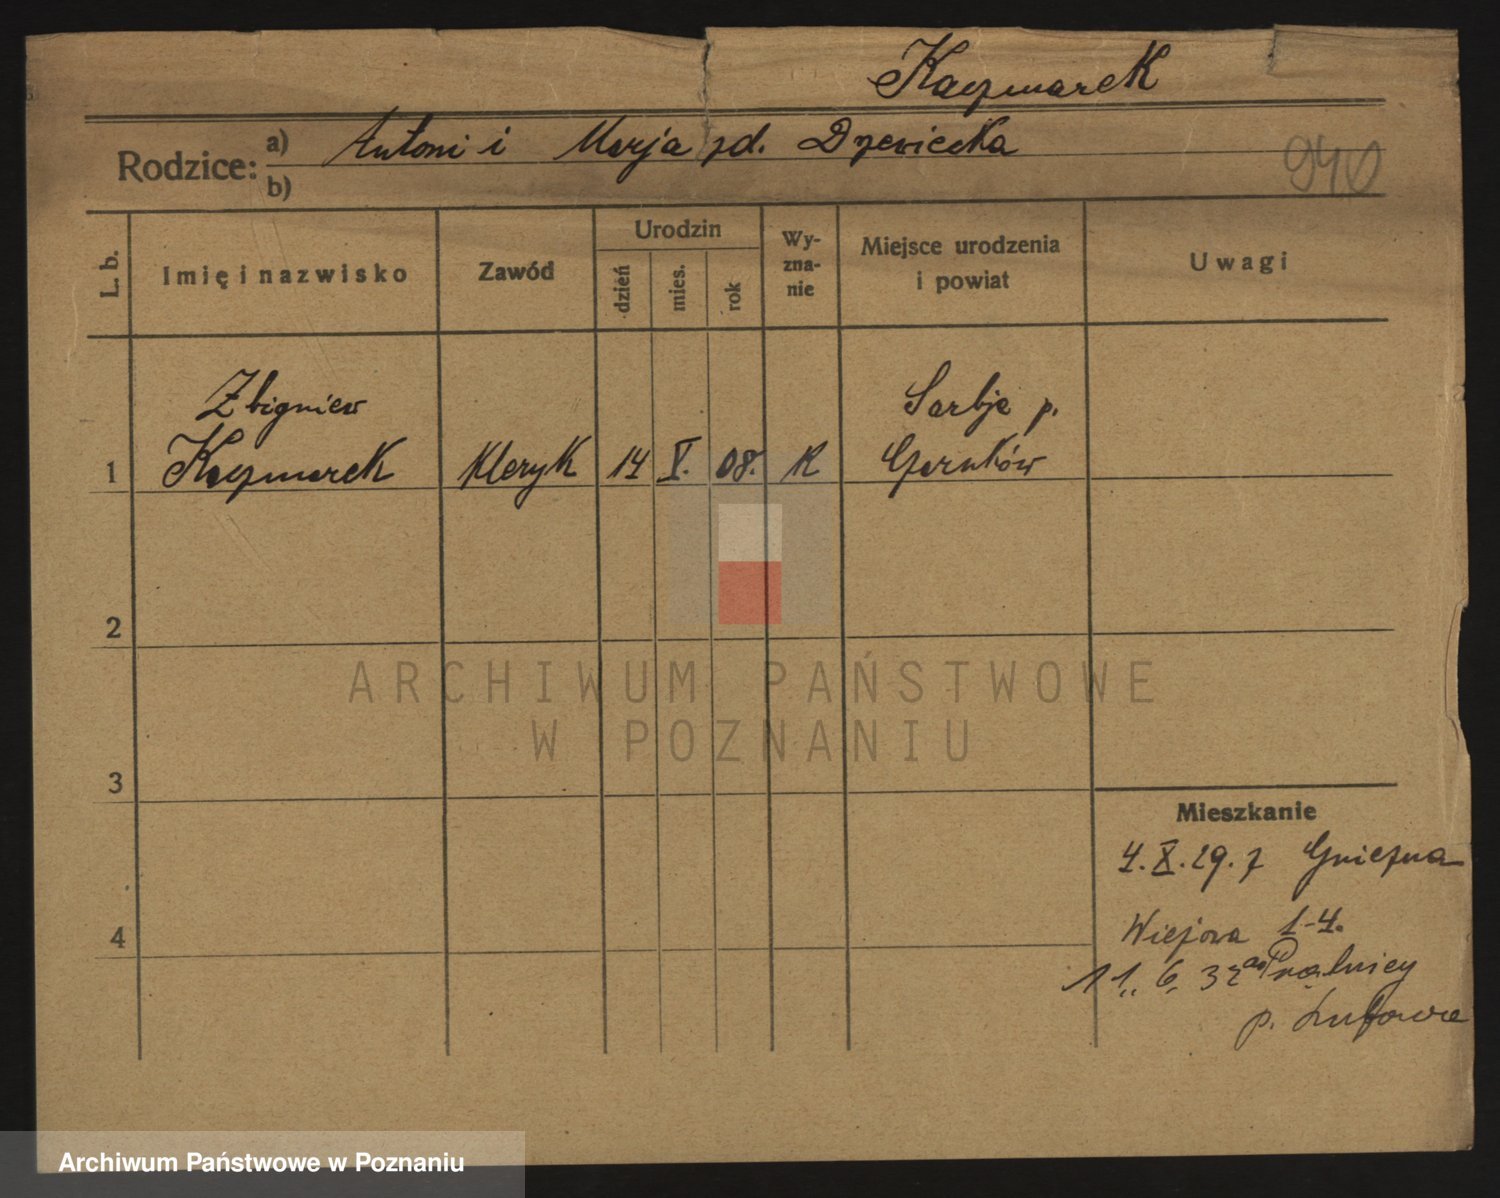 Kaczmarek
Rodzice: a) Antoni i Marja zd. Drzewiecka
b)
940
L. b.
Imię i nazwisko
Zawód
Urodzin
dzień
mies.
rok
Wy-
zna-
nie
Miejsce urodzenia
i powiat
Uwagi
Zbigniew
Sarbje p.
1 Kaczmarek Kleryk 14 V. 08. K Czarnków
2
ARCHIWUM PAŃSTWOWE
W POZNANIU
3
Mieszkanie
4. X. 29. z Gniezna
4
Wieżowa 1-4.
11. 6. 32
p.
Archiwum Państwowe w Poznaniu